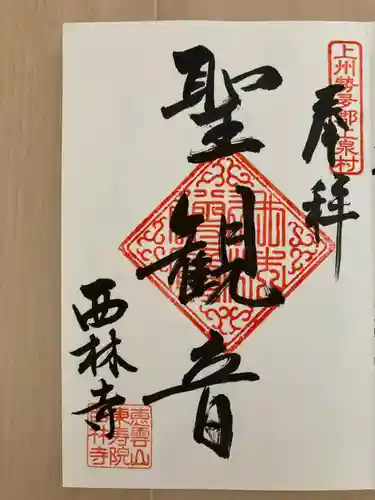 奉拝
上州勢多郡上泉村
聖観音
西林寺
恵雲山
東寿院
西林寺